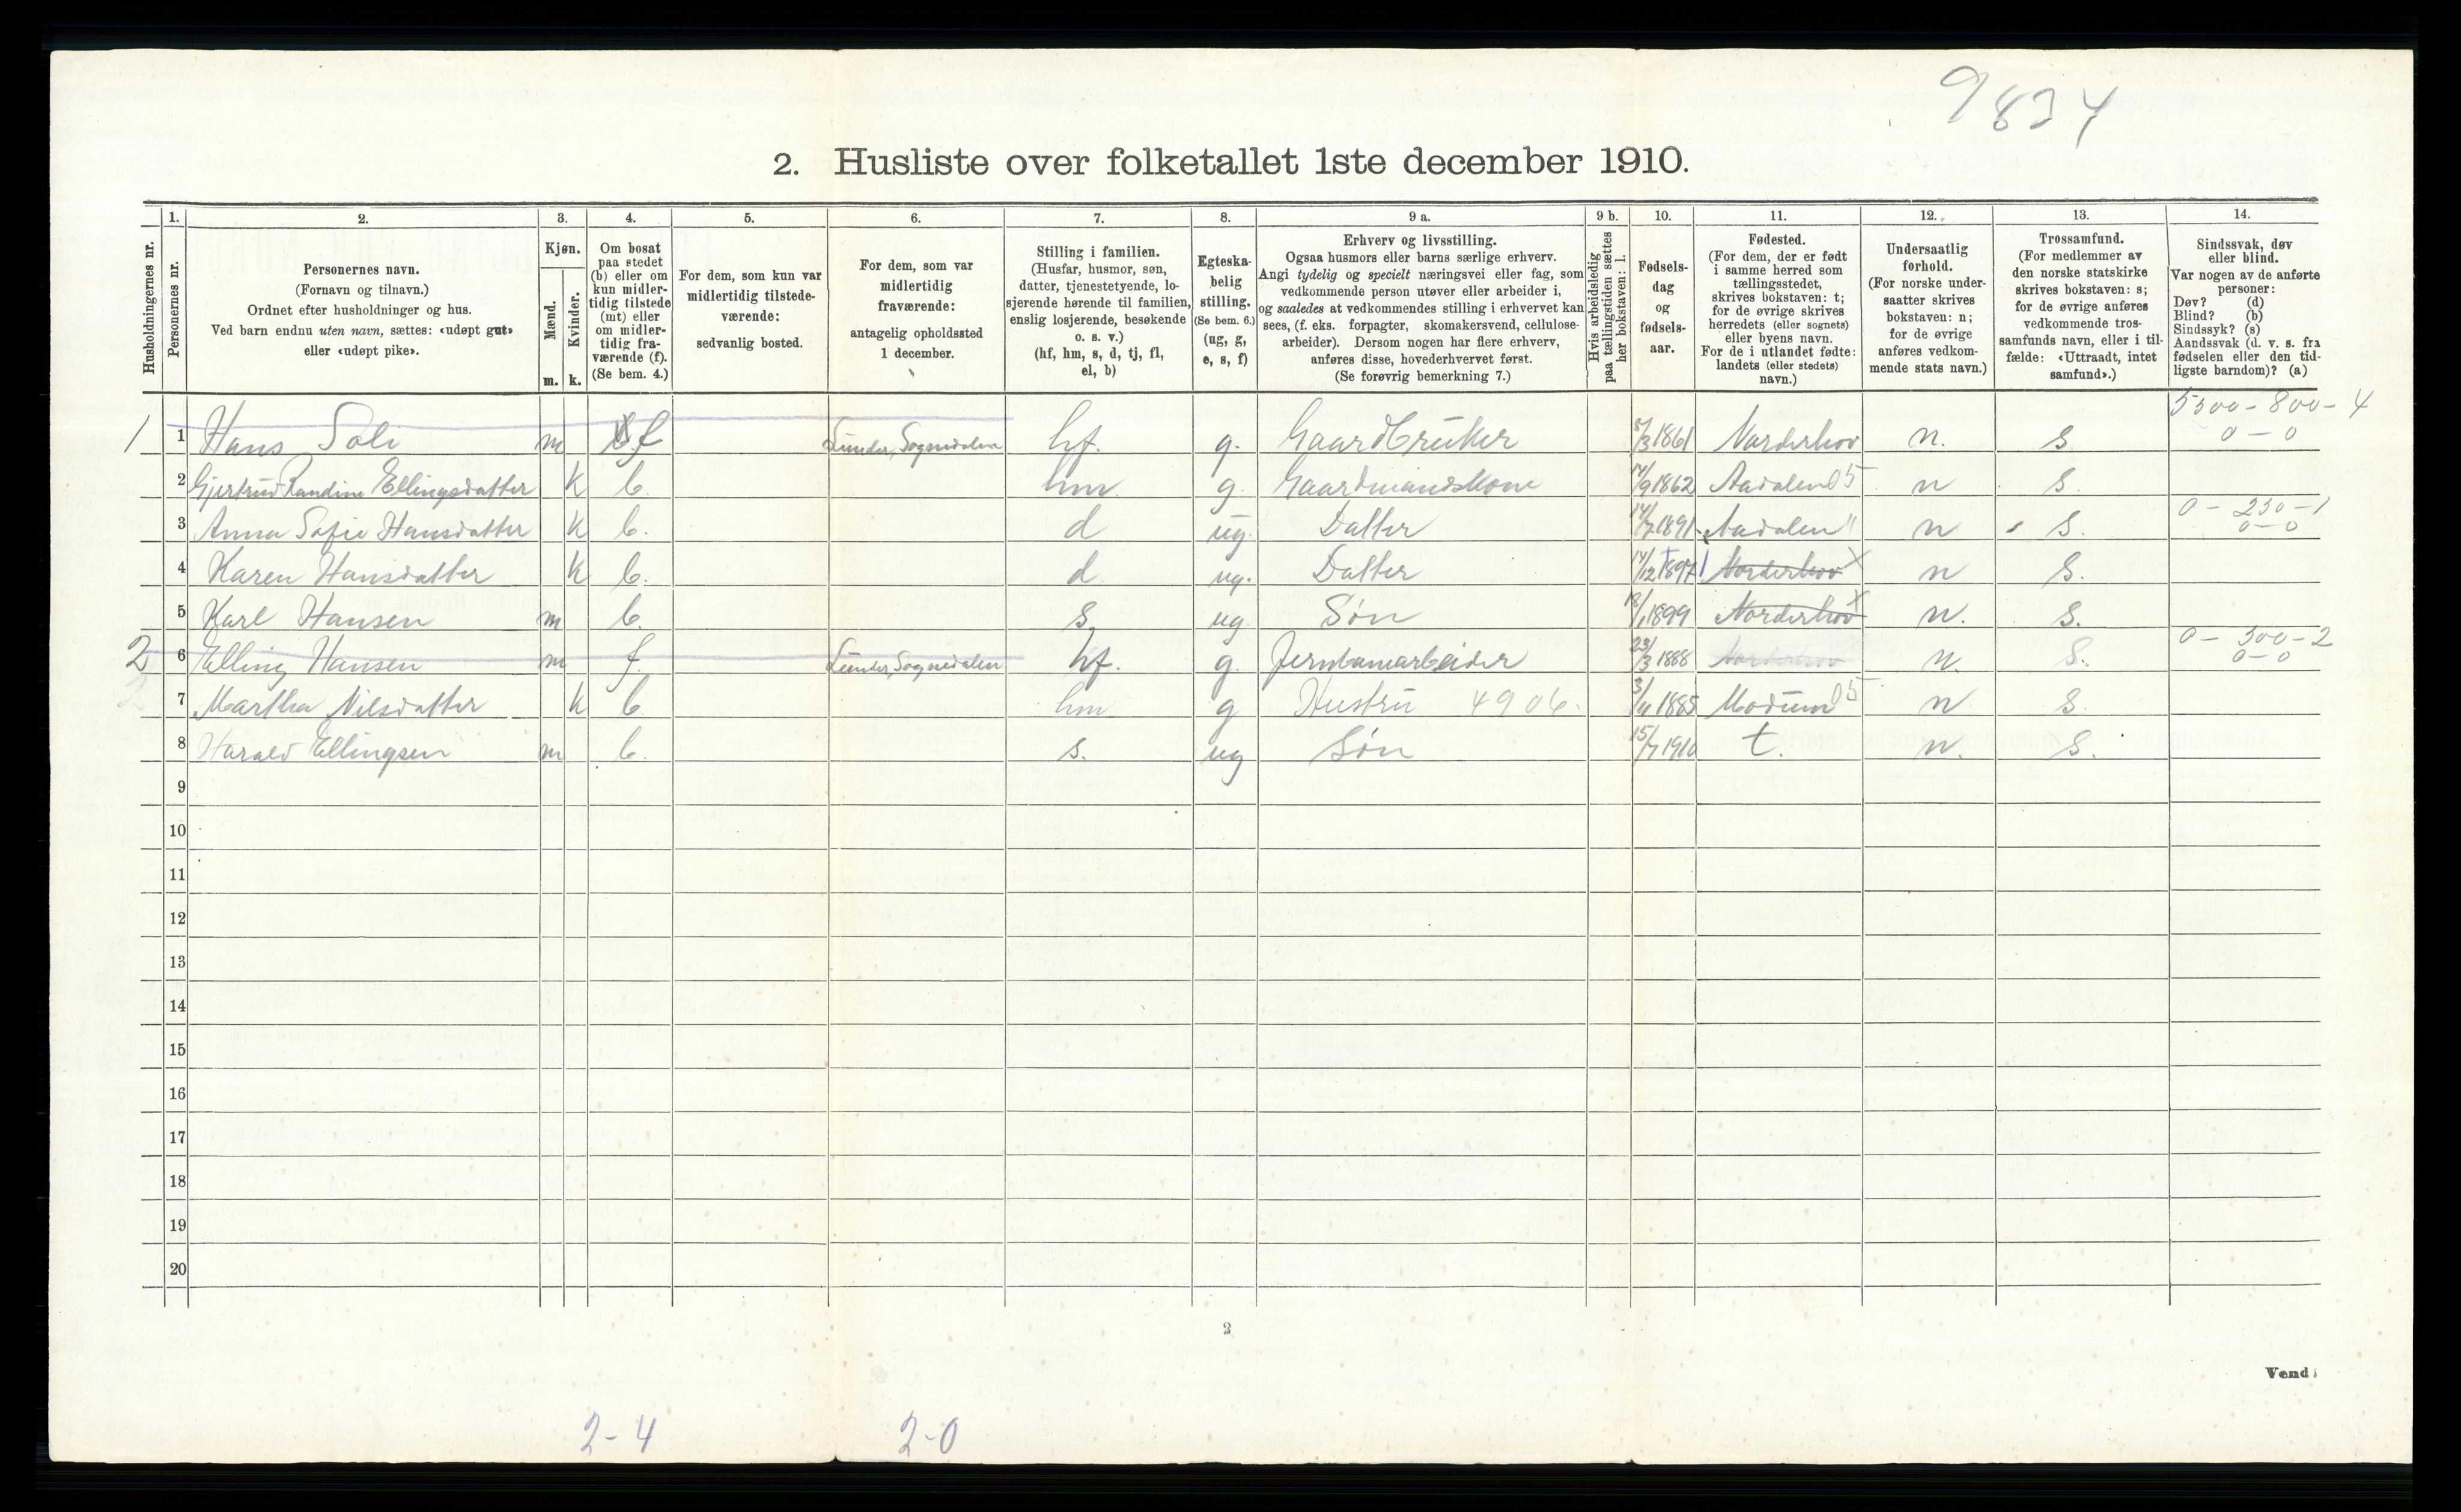 9834
2. Husliste over folketallet 1ste december 1910.
Husholdningernes nr.
1. Personernes nr.
2. Personernes navn.
(Fornavn og tilnavn.)
Ordnet efter husholdninger og hus.
Ved barn endnu uten navn, sættes: «udøpt gut»
eller «udøpt pike».
3. Kjøn.
Mænd. m.
Kvinder. k.
4. Om bosat
paa stedet
(b) eller om
kun midler-
tidig tilstede
(mt) eller
om midler-
tidig fra-
værende (f).
(Se bem. 4.)
5. For dem, som kun var
midlertidig tilstede-
værende:
sedvanlig bosted.
6. For dem, som var
midlertidig
fraværende:
antagelig opholdssted
1 december.
7. Stilling i familien.
(Husfar, husmor, søn,
datter, tjenestetyende, lo-
sjerende hørende til familien,
enslig losjerende, besøkende
o. s. v.)
(hf, hm, s, d, tj, fl,
el, b)
8. Egteska-
belig
stilling.
(Se bem. 6.)
(ug, g,
e, s, f)
9 a. Erhverv og livsstilling.
Ogsaa husmors eller barns særlige erhverv.
Angi tydelig og specielt næringsvei eller fag, som
vedkommende person utøver eller arbeider i,
og saaledes at vedkommendes stilling i erhvervet kan
sees, (f. eks. forpagter, skomakersvend, cellulose-
arbeider). Dersom nogen har flere erhverv,
anføres disse, hovederhvervet først.
(Se forøvrig bemerkning 7.)
9 b. Hvis arbeidsledig
paa tællingstiden sættes
her bokstaven: l.
10. Fødsels-
dag
og
fødsels-
aar.
11. Fødested.
(For dem, der er født
i samme herred som
tællingsstedet,
skrives bokstaven: t;
for de øvrige skrives
herredets (eller sognets)
eller byens navn.
For de i utlandet fødte:
landets (eller stedets)
navn.)
12. Undersaatlig
forhold.
(For norske under-
saatter skrives
bokstaven: n;
for de øvrige
anføres vedkom-
mende stats navn.)
13. Trossamfund.
(For medlemmer av
den norske statskirke
skrives bokstaven: s;
for de øvrige anføres
vedkommende tros-
samfunds navn, eller i til-
fælde: «Uttraadt, intet
samfund».)
14. Sindssvak, døv
eller blind.
Var nogen av de anførte
personer:
Døv? (d)
Blind? (b)
Sindssyk? (s)
Aandssvak (d. v. s. fra
fødselen eller den tid-
ligste barndom)? (a)
5500 - 800 - 4
1 1 Hans Soli m f Lunder, Sognedalen hf. g. Gaardbruker /3 1861 Norderhov n. s. 0 - 0
2 Gjertrud Randine Ellingsdatter k b. hm. g. Gaardmandskone /9 1862 Aadalen 05 n s.
0 - 250 - 1
3 Anna Sofie Hansdatter k b. d ug. Datter 14/7 1891 Aadalen " n s. 0 - 0
4 Karen Hansdatter k b. d ug. Datter 14/12 1897 Norderhov n s.
5 Karl Hansen m b. s. ug. Søn 18/1 1899 Norderhov n. s.
0 - 300 - 2
2 6 Elling Hansen m f. Lunder, Sognedalen hf. g. Jernbanearbeider 23/3 1888 Norderhov n. s. 0 - 0
7 Martha Nilsdatter k b hm g Hustru 4906. 3/11 1885 Modum 05 n s.
8 Harald Ellingsen m b. s. ug Søn 15/7 1910 t. n. s.
9
10
11
12
13
14
15
16
17
18
19
20
2
Vend!
2-4 2-0